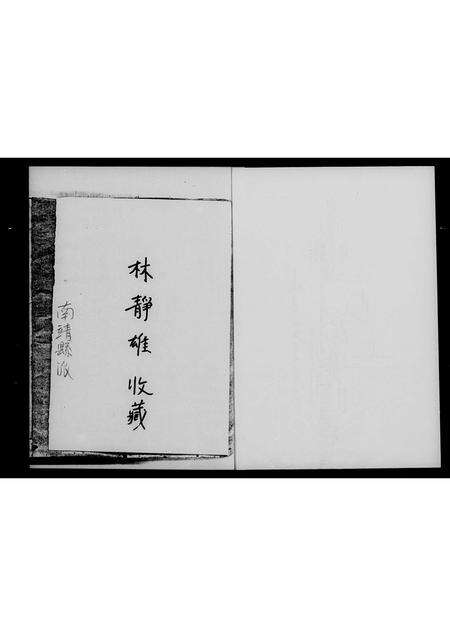 林靜雄收藏
南靖縣派